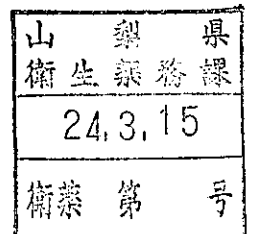 山梨県
衛生薬務課
24.3.15
衛薬第 号